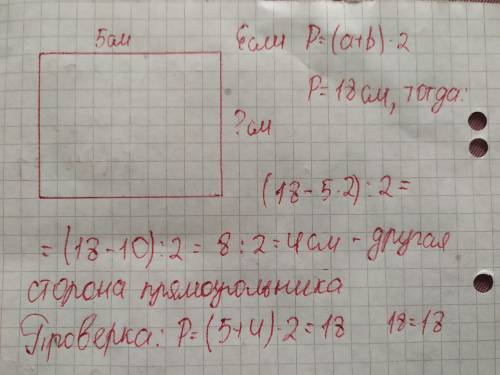 5см Если P=(a+b)·2
P=18см, тогда:
?см
(18-5·2):2=
=(18-10):2=8:2=4см - другая
сторона прямоугольника
Проверка: P=(5+4)·2=18 18=18